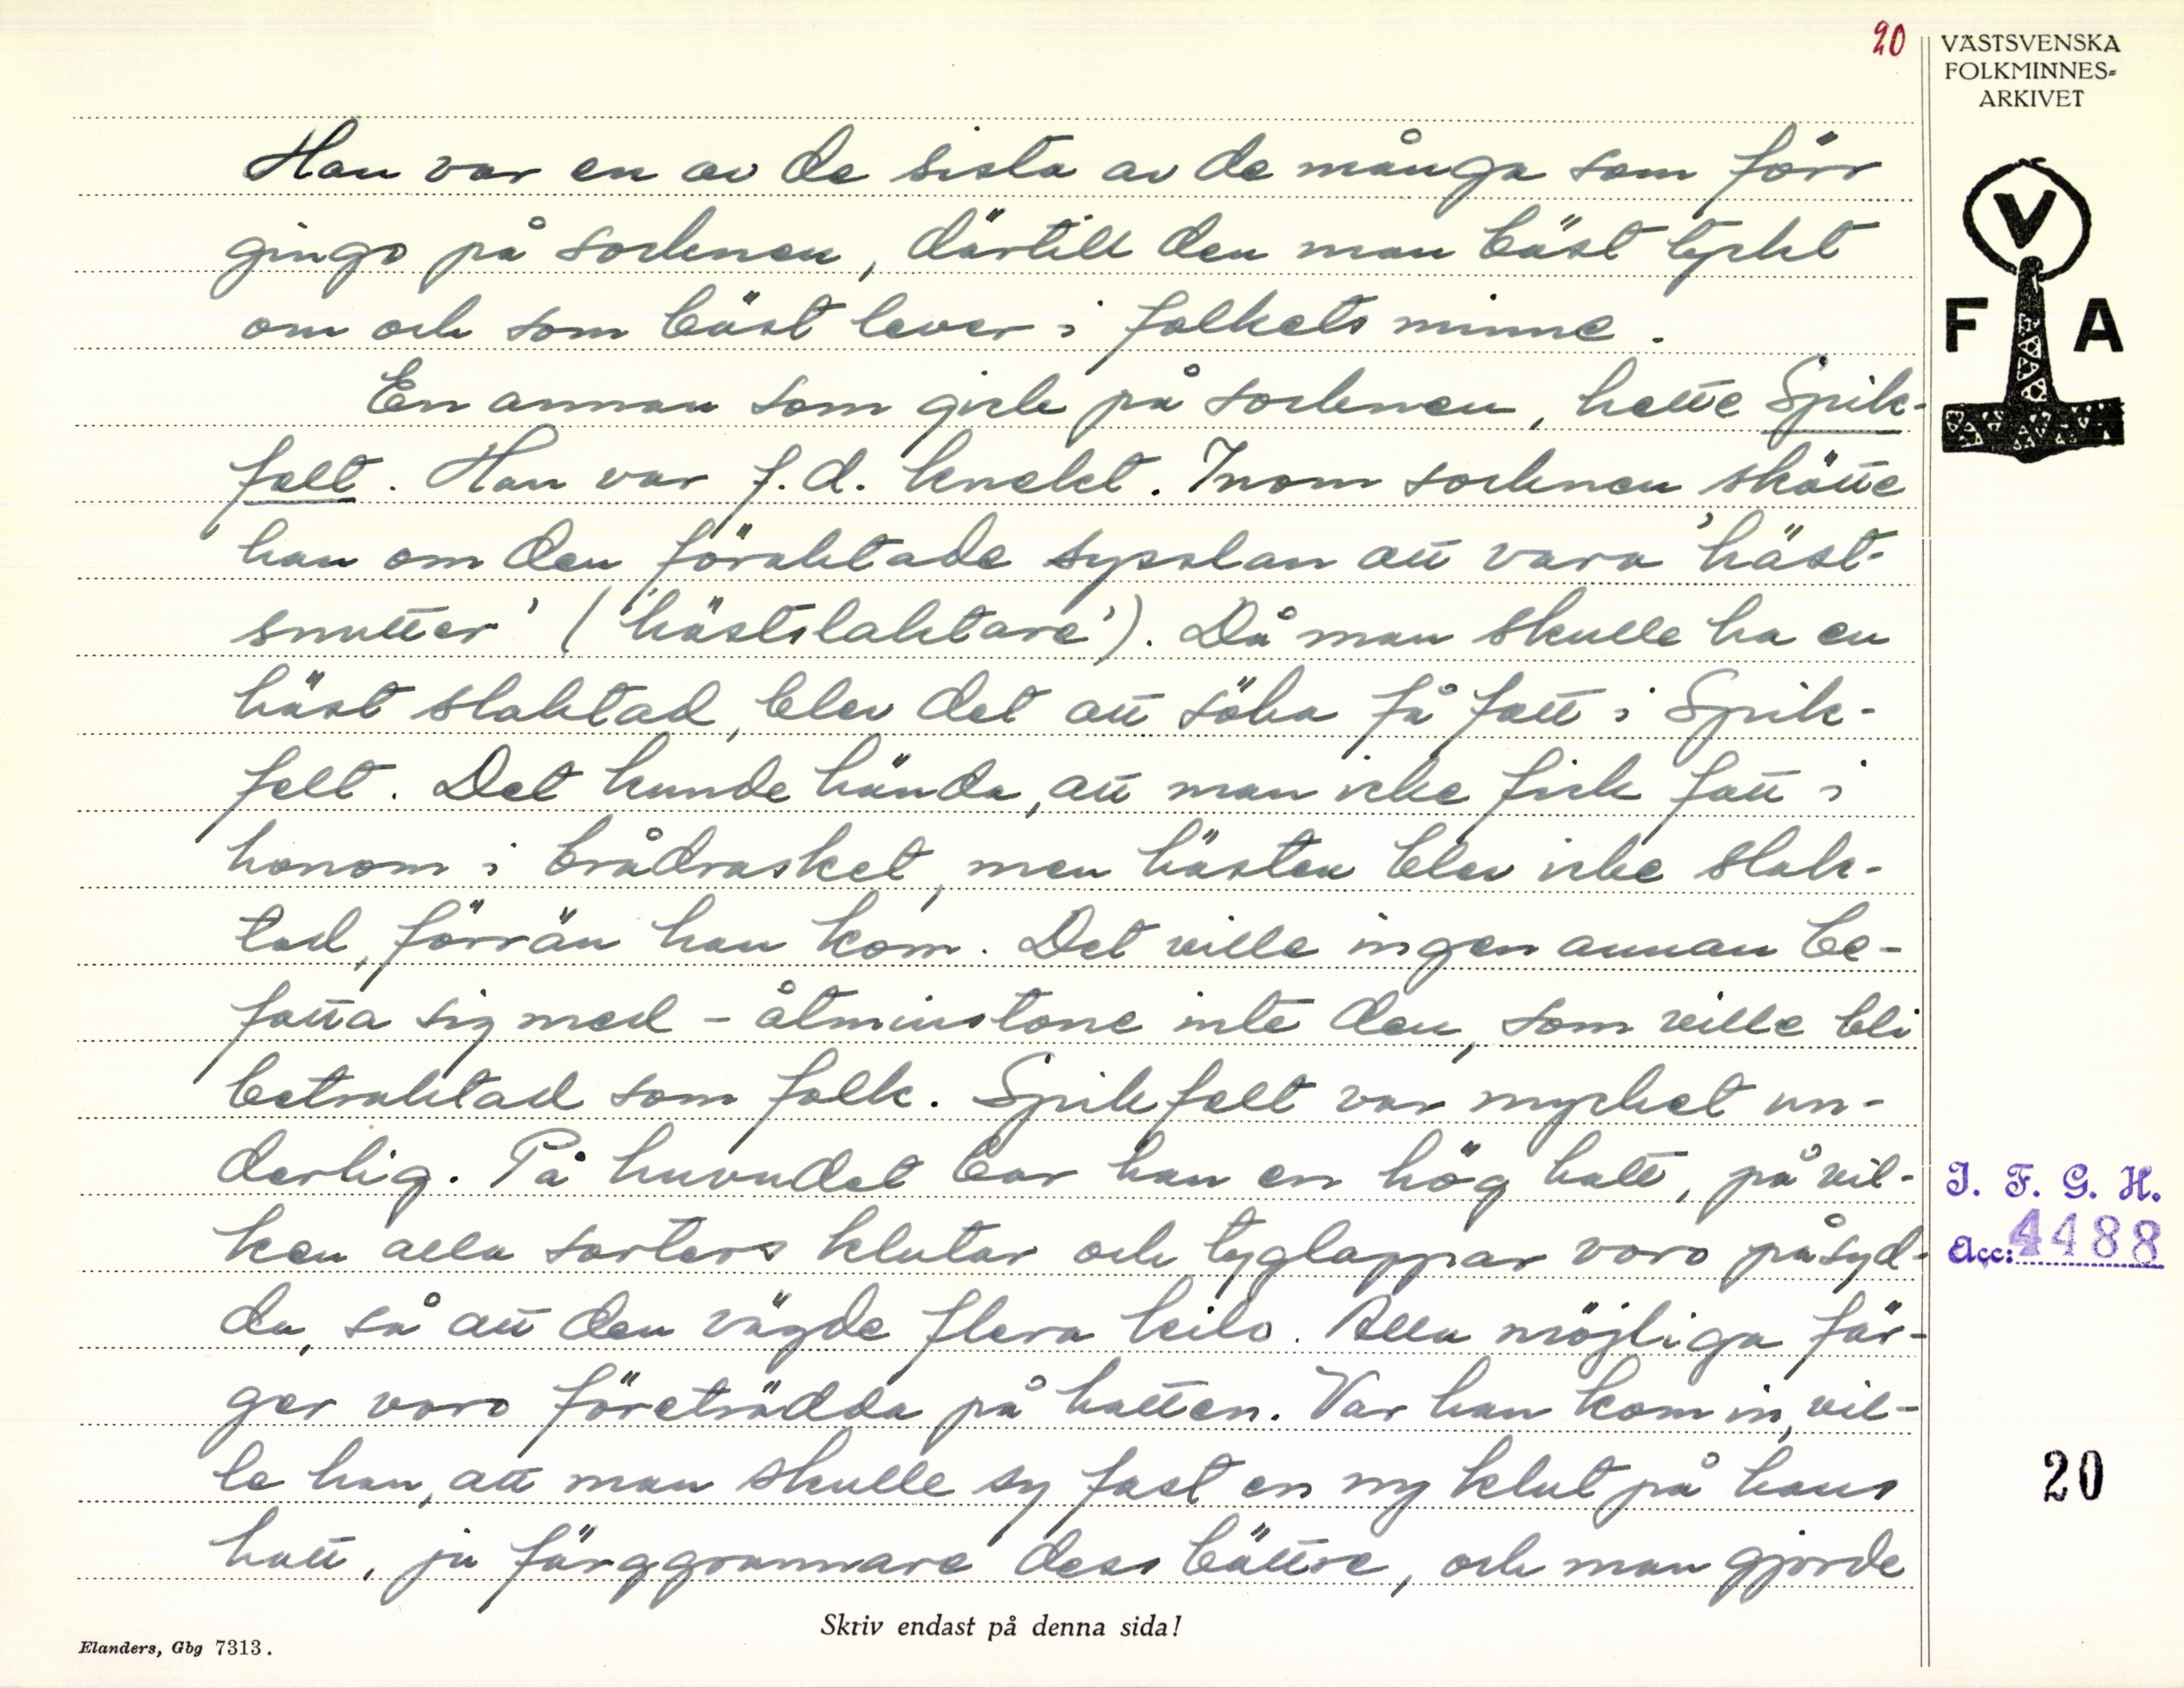 20
VÄSTSVENSKA
FOLKMINNES=
ARKIVET
V
F A
Han var en av de sista av de många som förr
gingo på socknen, därtill den man bäst tyckt
om och som bäst lever i folkets minne.
En annan som gick på socknen, hette Spik-
felt. Han var f.d. knekt. Inom socknen skötte
han om den föraktade sysslan att vara 'häst-
snutter' ('hästslaktare'). Då man skulle ha en
häst slaktad, blev det att söka få fatt i Spik-
felt. Det kunde hända, att man icke fick fatt i
honom i brådrasket, men hästen blev icke slak-
tad, förrän han kom. Det ville ingen annan be-
fatta sig med - åtminstone inte den, som ville bli
betraktad som folk. Spikfelt var mycket un-
derlig. På huvudet bar han en hög hatt, på vil-
ken alla sorters klutar och tyglappar voro påsyd-
da, så att den vägde flera kilo. Alla möjliga fär-
ger voro företrädda på hatten. Var han kom in, vil-
le han, att man skulle sy fast en ny klut på hans
hatt, ju färggrannare dess bättre, och man gjorde
I. F. G. H.
Acc: 4488
20
Skriv endast på denna sida!
Elanders, Gbg 7313.